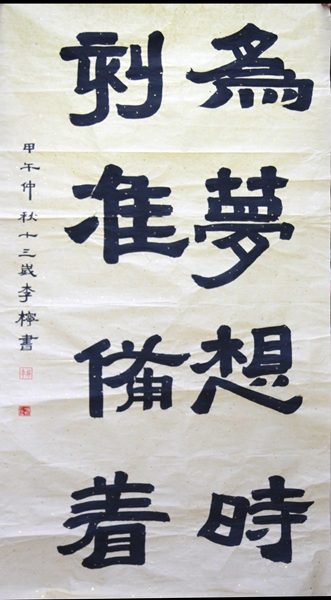 為夢想時
刻準備着
甲午仲秋十三歲李檸書